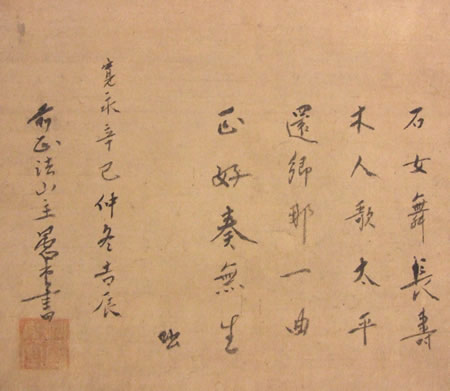 石女舞長壽
木人歌太平
還郷那一曲
正好奏無生
寛永辛巳仲冬吉辰
前正法山主愚書